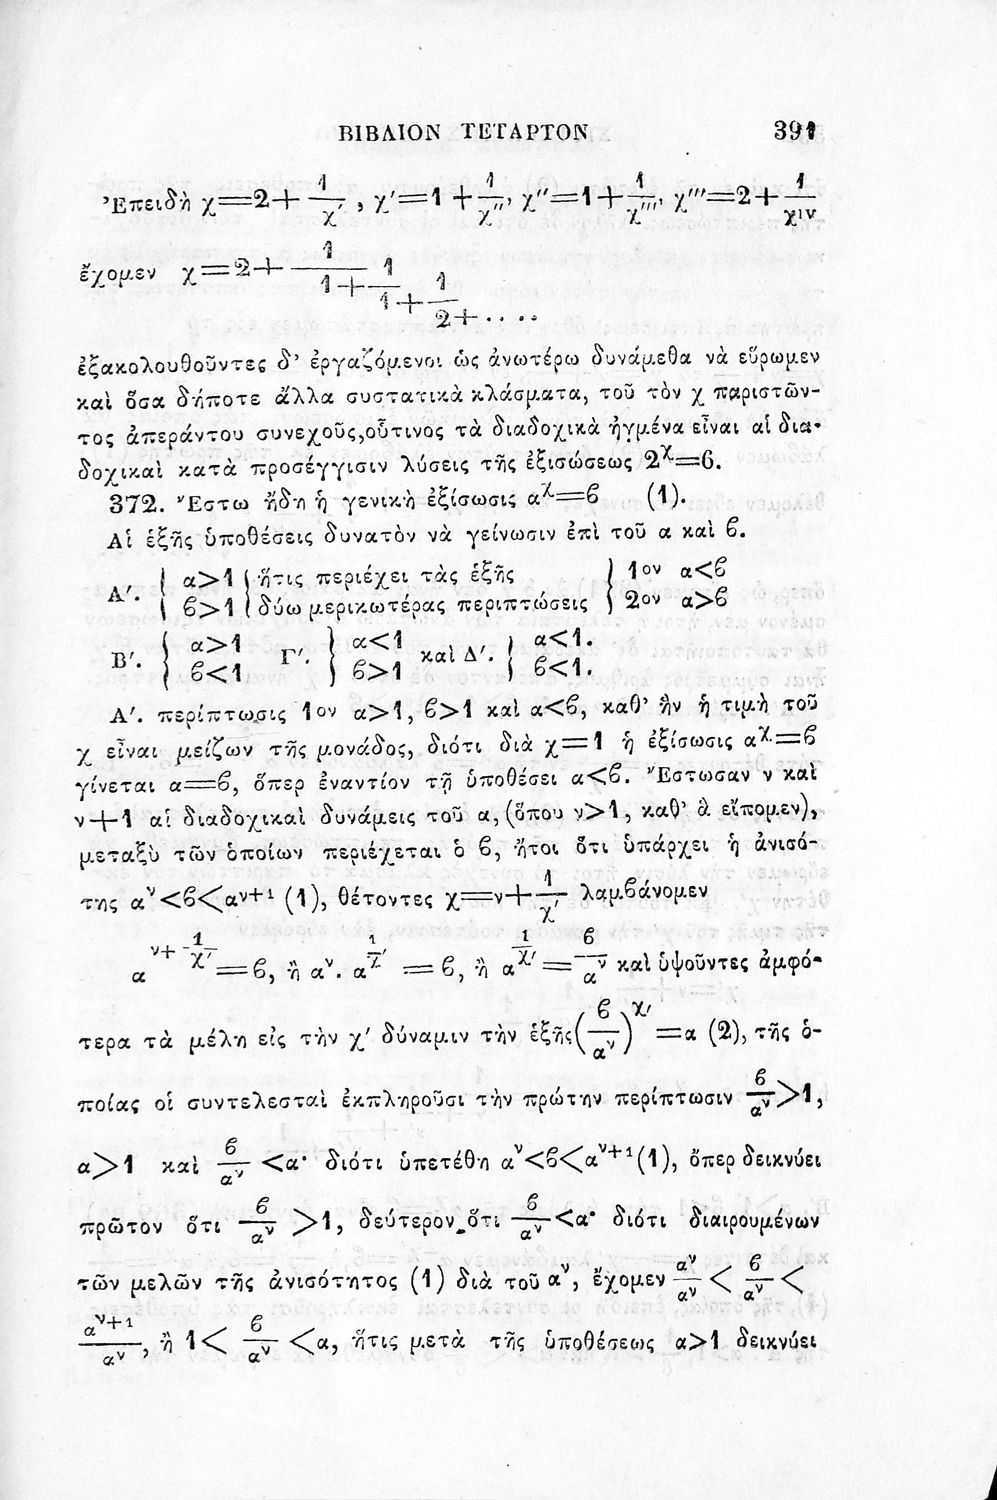 ΒΙΒΛΙΟΝ ΤΕΤΑΡΤΟΝ 391
Ἐπειδὴ χ=2+1/χ′, χ′=1+1/χ″, χ″=1+1/χ‴, χ‴=2+1/χIV
ἔχομεν χ=2+1/1+1/1+1/2+....
ἐξακολουθοῦντες δ’ ἐργαζόμενοι ὡς ἀνωτέρω δυνάμεθα νὰ εὕρωμεν
καὶ ὅσα δήποτε ἄλλα συστατικὰ κλάσματα, τοῦ τὸν χ παριστῶν-
τος ἀπεράντου συνεχοῦς,οὗτινος τὰ διαδοχικὰ ἡγμένα εἶναι αἱ δια-
δοχικαὶ κατὰ προσέγγισιν λύσεις τῆς ἐξισώσεως 2^χ=6.
372. Ἔστω ἤδη ἡ γενικὴ ἐξίσωσις α^χ=ϐ (1).
Αἱ ἑξῆς ὑποθέσεις δυνατὸν νὰ γείνωσιν ἐπὶ τοῦ α καὶ ϐ.
Α′. { α>1 { ἥτις περιέχει τὰς ἑξῆς } 1ον α<ϐ
{ ϐ>1 { δύω μερικωτέρας περιπτώσεις } 2ον α>ϐ
Β′. { α>1 Γ′. } α<1 καὶ Δ′. { α<1.
{ ϐ<1 } ϐ>1 { ϐ<1.
Α′. περίπτωσις 1ον α>1, ϐ>1 καὶ α<ϐ, καθ’ ἣν ἡ τιμὴ τοῦ
χ εἶναι μείζων τῆς μονάδος, διότι διὰ χ=1 ἡ ἐξίσωσις α^χ=ϐ
γίνεται α=ϐ, ὅπερ ἐναντίον τῇ ὑποθέσει α<ϐ. Ἔστωσαν ν καὶ
ν+1 αἱ διαδοχικαὶ δυνάμεις τοῦ α,(ὅπου ν>1, καθ’ ἃ εἴπομεν),
μεταξὺ τῶν ὁποίων περιέχεται ὁ ϐ, ἤτοι ὅτι ὑπάρχει ἡ ἀνισό-
της α^ν<ϐ<α^ν+1 (1), θέτοντες χ=ν+1/χ′ λαμβάνομεν
α^ν+1/χ′=ϐ, ἢ α^ν. α^1/χ′=ϐ, ἢ α^1/χ′=ϐ/α^ν καὶ ὑψοῦντες ἀμφό-
τερα τὰ μέλη εἰς τὴν χ′ δύναμιν τὴν ἑξῆς(ϐ/α^ν)^χ′=α (2), τῆς ὁ-
ποίας οἱ συντελεσταὶ ἐκπληροῦσι τὴν πρώτην περίπτωσιν ϐ/α^ν>1,
α>1 καὶ ϐ/α^ν<α· διότι ὑπετέθη α^ν<ϐ<α^ν+1(1), ὅπερ δεικνύει
πρῶτον ὅτι ϐ/α^ν>1, δεύτερον ὅτι ϐ/α^ν<α· διότι διαιρουμένων
τῶν μελῶν τῆς ἀνισότητος (1) διὰ τοῦ α^ν, ἔχομεν α^ν/α^ν<ϐ/α^ν<
α^ν+1/α^ν, ἢ 1<ϐ/α^ν<α, ἥτις μετὰ τῆς ὑποθέσεως α>1 δεικνύει